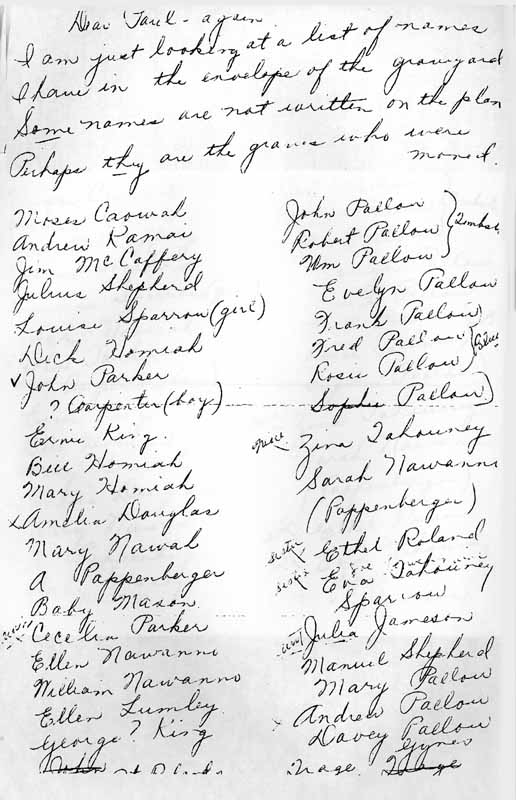 Dear Paul - again
I am just looking at a list of names
I have in the envelope of the graveyard
Some names are not written on the plan
Perhaps thy are the graves who were
moved.
Moses Caowah
Andrew Kamai
Jim McCaffery
Julius Shepherd
Louise Sparrow (girl)
Dick Homiah
✓ John Parker
? Carpenter (boy)
Ernie King
Bill Homiah
Mary Homiah
x Amelia Douglas
Mary Nawah
A Pappenberger
Baby Maxon
Cecelia Parker
Ellen Nawanno
William Nawanno
Ellen Lumley
George ? King
John Pallow
Robert Pallow
Wm Pallow
Evelyn Pallow
Frank Pallow
Fred Pallow
Rosie Pallow
Sophie Pallow
niece Zina Tahouney
Sarah Nawanni
(Pappenberger)
sister Ethel Roland
sister Eva Tahouney
Sparrow
Julia Jameson
Manuel Shepherd
Mary Pallow
x Andrew Pallow
Davey Pallow